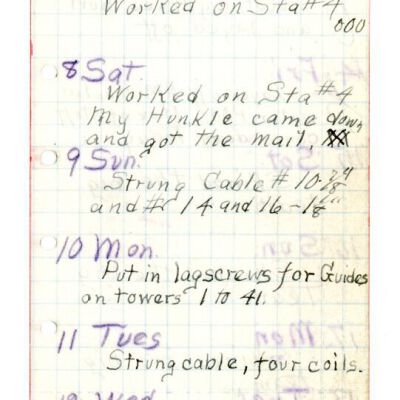 Worked on Sta #4
000
8 Sat
Worked on Sta #4
My Hunkle came down
and got the mail.
9 Sun.
Strung Cable # 10-
and # 14 and 16 -
10 Mon.
Put in lagscrews for Guides
on towers 1 to 41.
11 Tues
Strung cable, four coils.
12 Wed